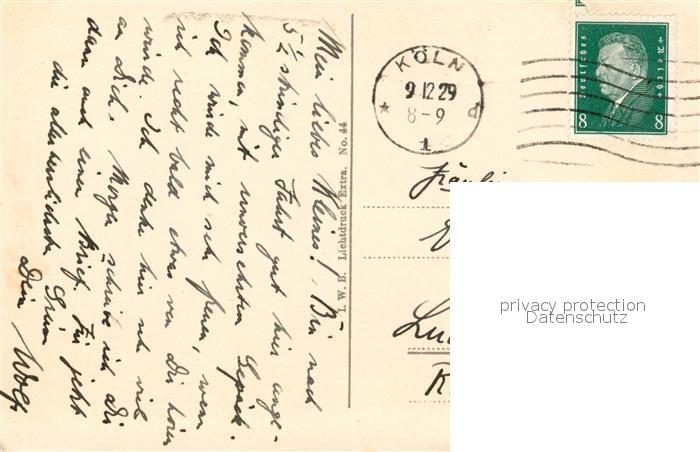 Mein liebes Kleines! Bin nach
5 ½ stündiger Fahrt gut hier ange-
kommen, mit unversehrtem Gepäck.
Ich würde mich sehr freuen, wenn
ich recht bald etwas von Dir hören
würde. Ich denke hier sehr viel
an Dich. Morgen schreibe ich Dir
dann auch einen Brief. Für jetzt
die allerherzlichsten Grüsse
Dein Wolf
I. W. B. Lichtdruck Extra. No. 44
KÖLN
9 12 29
8-9
1
Deutsches Reich
8 8
Fräulein
privacy protection
Datenschutz